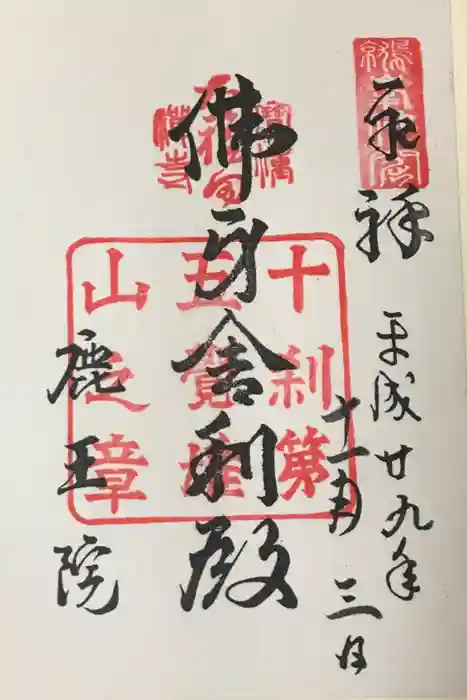 奉拝
平成廿九年
十一月三日
佛牙舎利殿
鹿王院
十刹第
五覺雄
山之章